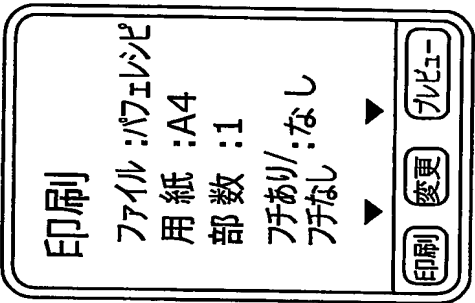 印刷
ファイル:パフェレシピ
用紙:A4
部数:1
フチあり/
フチなし:なし
▼ ▼
印刷 変更 プレビュー